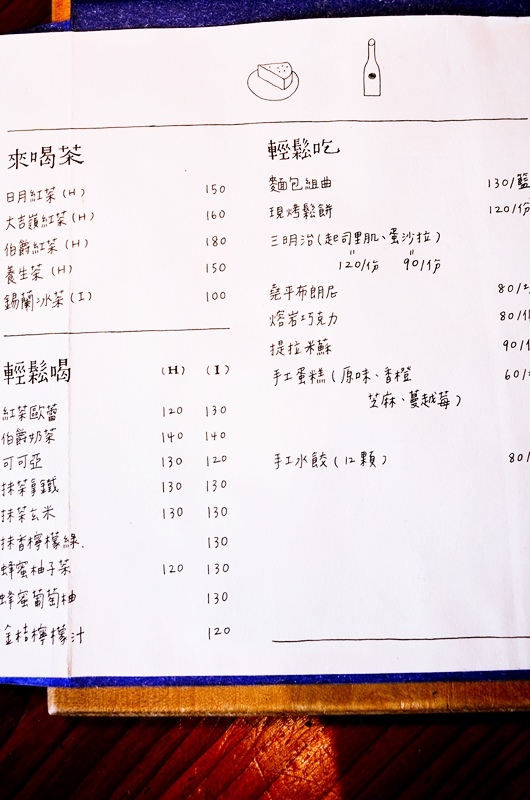 來喝茶
日月紅茶(H) 150
大吉嶺紅茶(H) 160
伯爵紅茶(H) 180
養生茶(H) 150
錫蘭冰茶(I) 100
輕鬆喝 (H) (I)
紅茶歐蕾 120 130
伯爵奶茶 140 140
可可亞 130 120
抹茶拿鐵 130 130
抹茶玄米 130 130
抹香檸檬綠. 130
蜂蜜柚子茶 120 130
蜂蜜葡萄柚 130
金桔檸檬汁 120
輕鬆吃
麵包組曲 130/籃
現烤鬆餅 120/份
三明治(起司里肌、蛋沙拉)
120/份 90/份
堯平布朗尼 80/
熔岩巧克力 80/
提拉米蘇 90/
手工蛋糕(原味、香橙 60/
芝麻、蔓越莓)
手工水餃(12顆) 80/